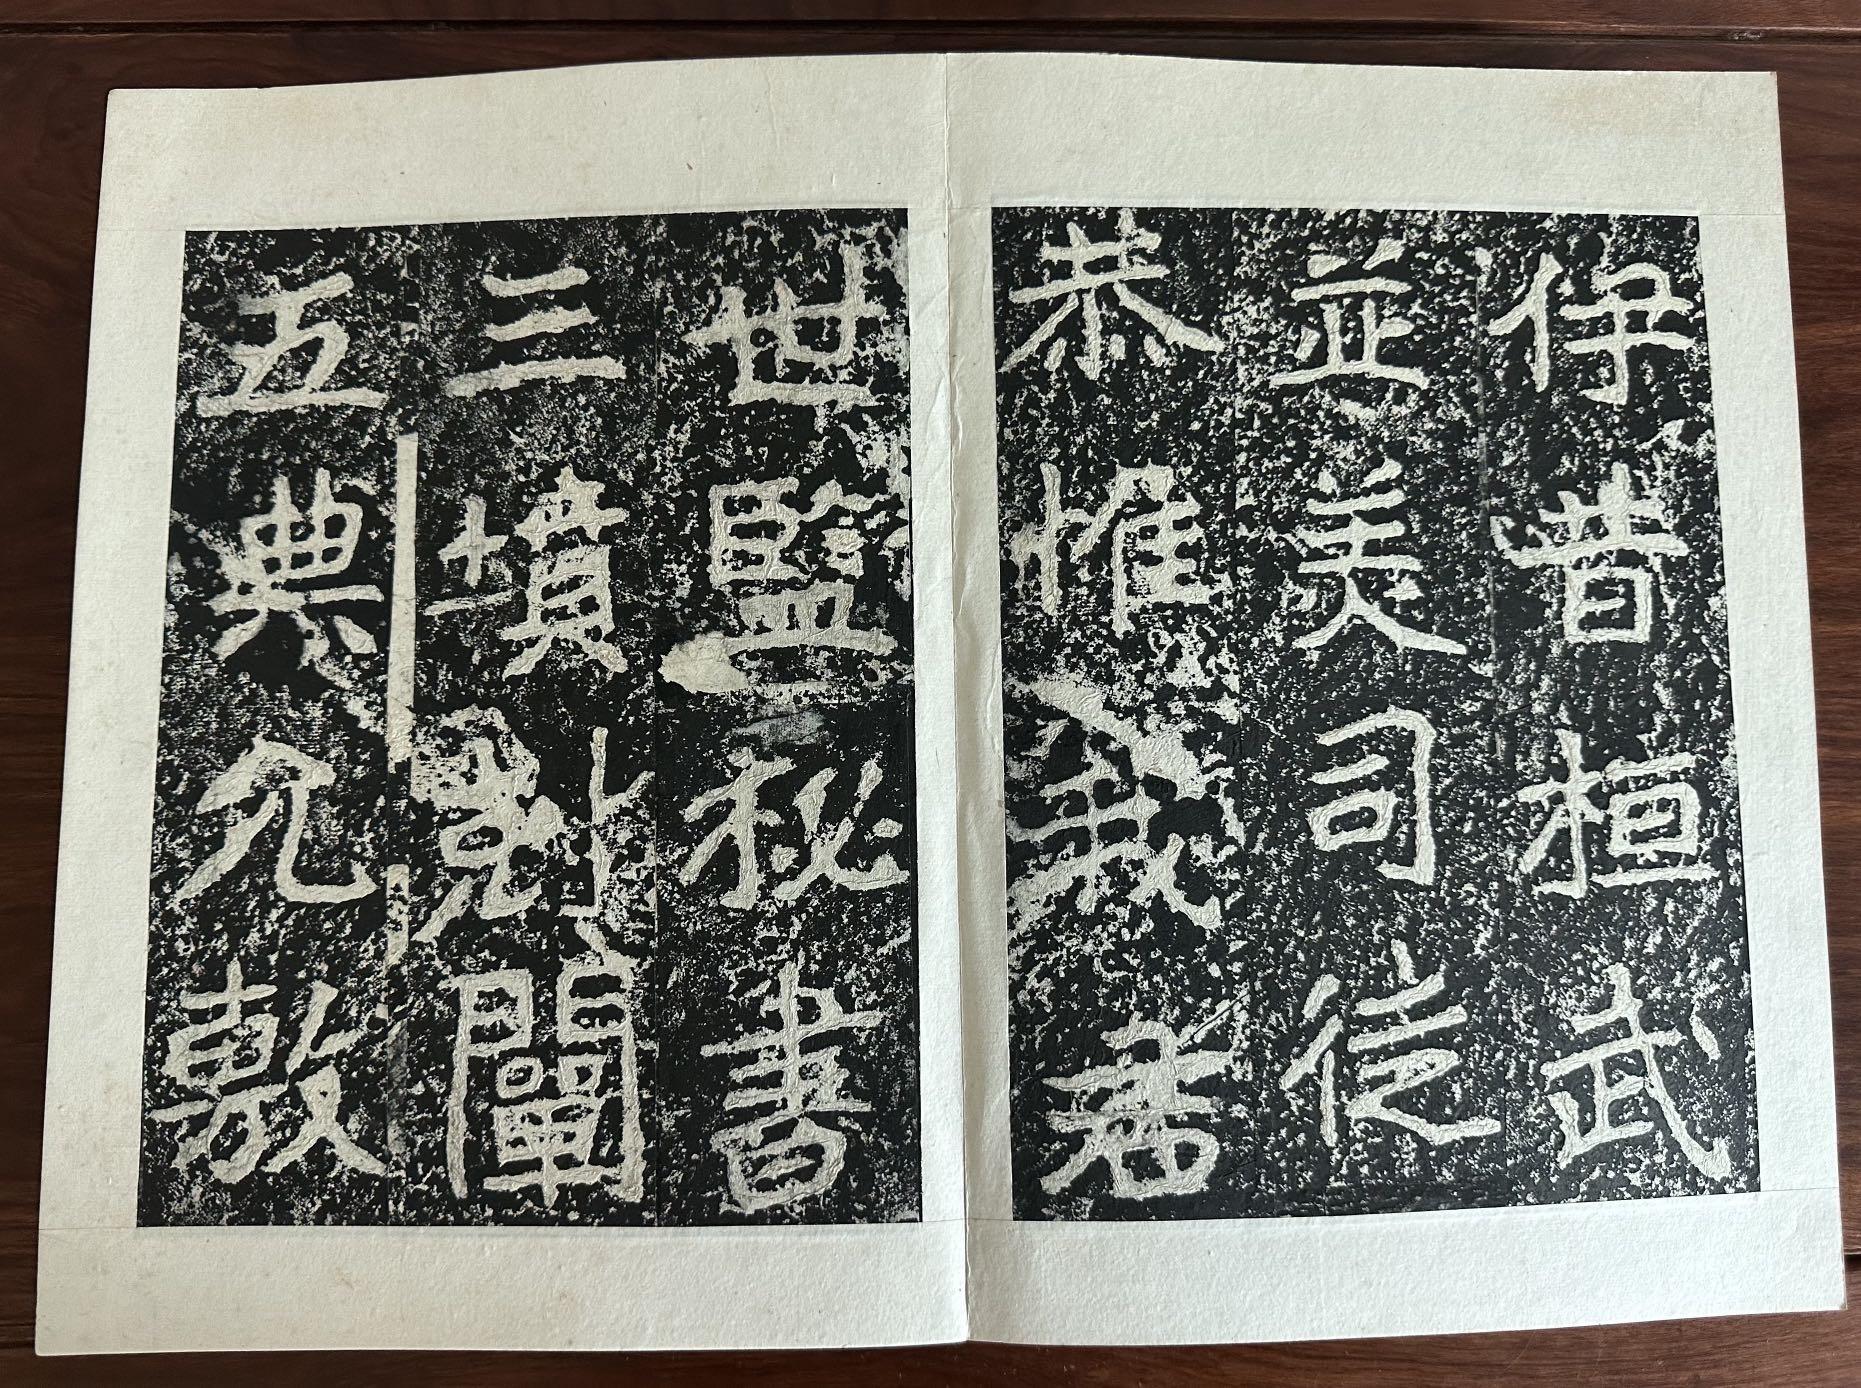 伊昔桓武
並美司徒
恭惟我君
世監秘書
三墳剋闡
五典允敷